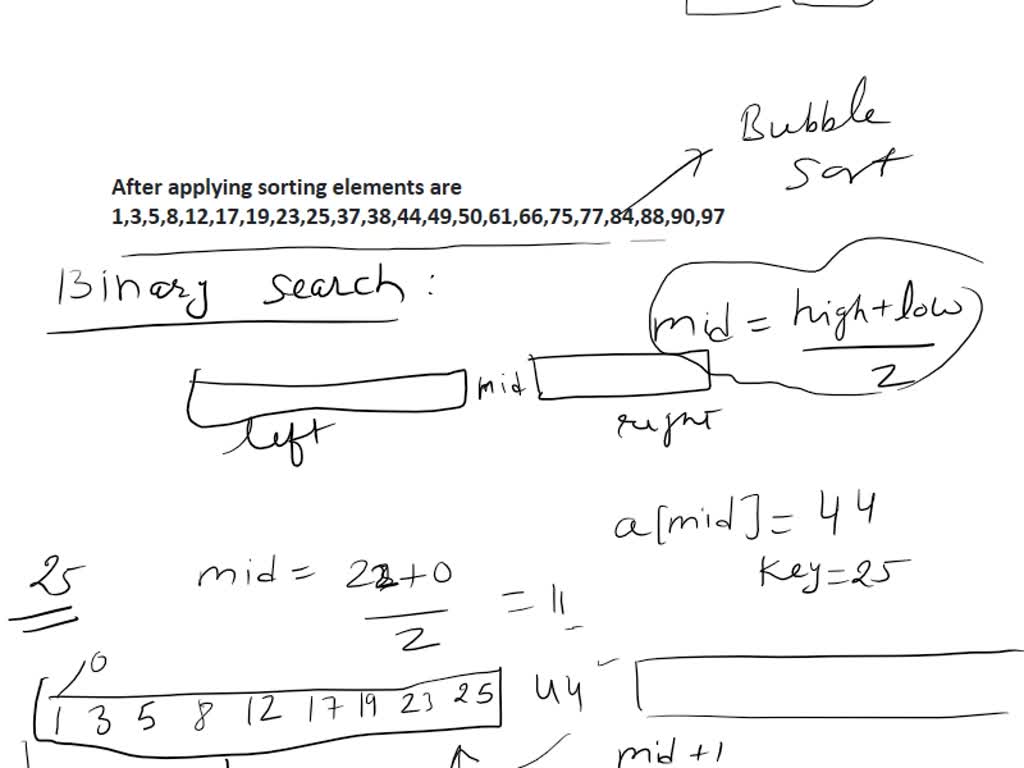 Bubble
Sort
After applying sorting elements are
1,3,5,8,12,17,19,23,25,37,38,44,49,50,61,66,75,77,84,88,90,97
Binary search :
mid = high+low
2
mid
left
right
a[mid] = 44
Key=25
25
mid = 22+0
2
= 11
0
1 3 5 8 12 17 19 23 25
44
mid +1